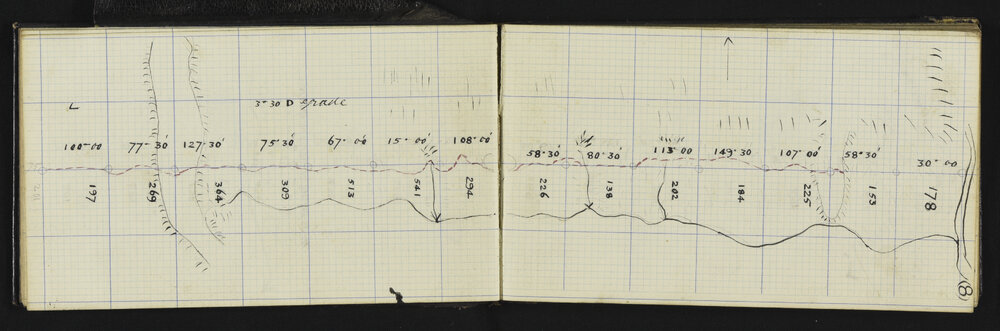 L
3°30 D grade
100°00 77°30' 127°30' 75°30' 67°00' 15°00' 108°00'
58°30' 80°30' 113°00 149°30 107°00' 58°30' 30°00
197 269 364 309 513 541 294
226 138 202 184 225 153 178
(8)